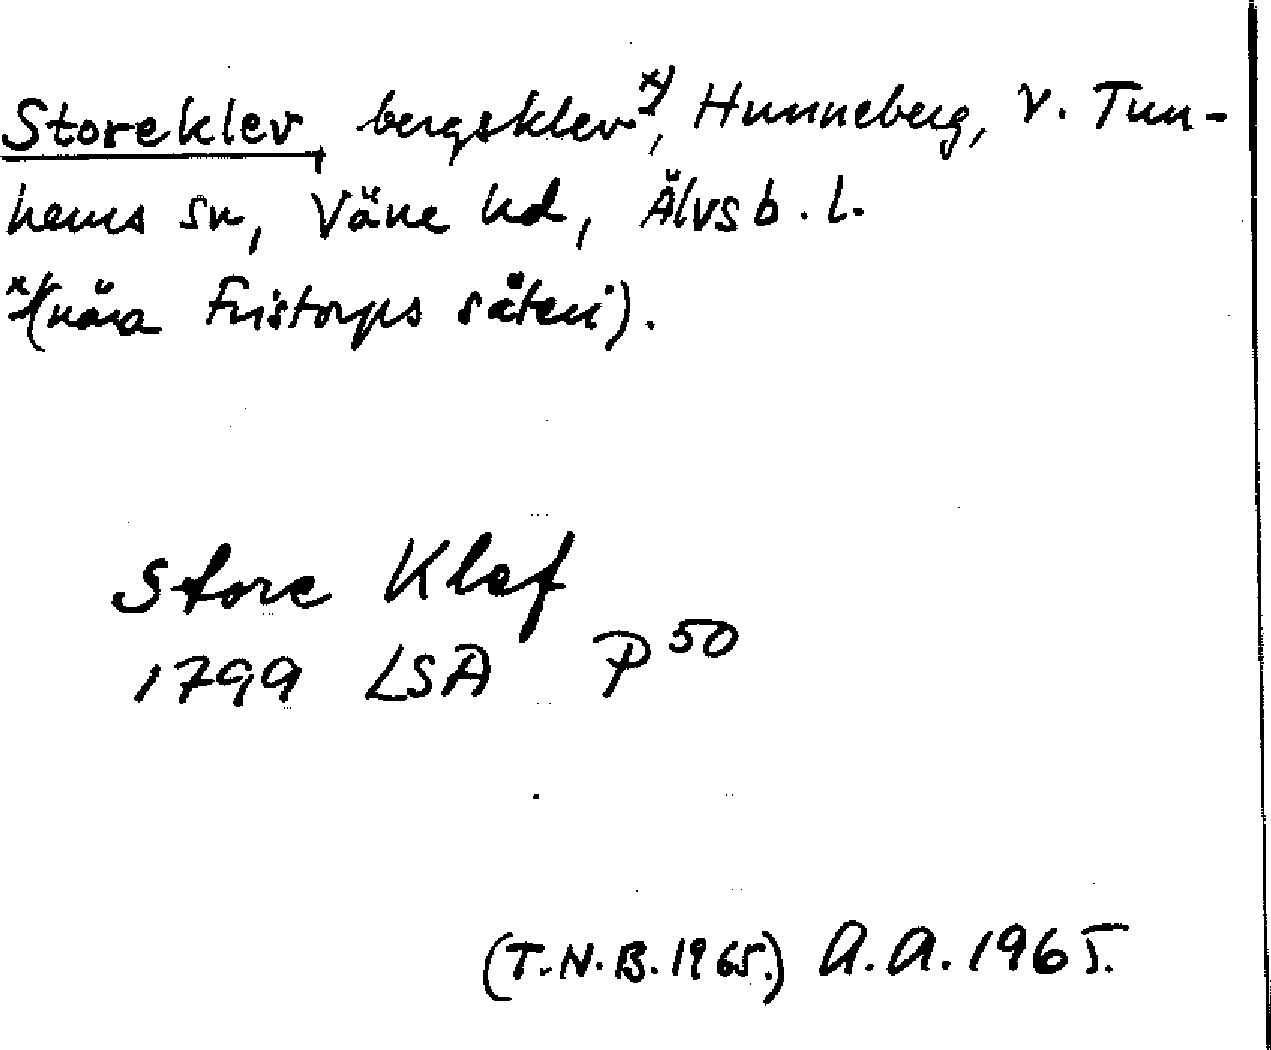 Storeklev, bergsklev x), Hunneberg, V. Tun-
hems sn, Väne hd, Älvsb. l.
x) (nära Fristorps säteri).
Store Klef
1799 LSA P 50
(T.N.B. 1965.) A.A. 1965.